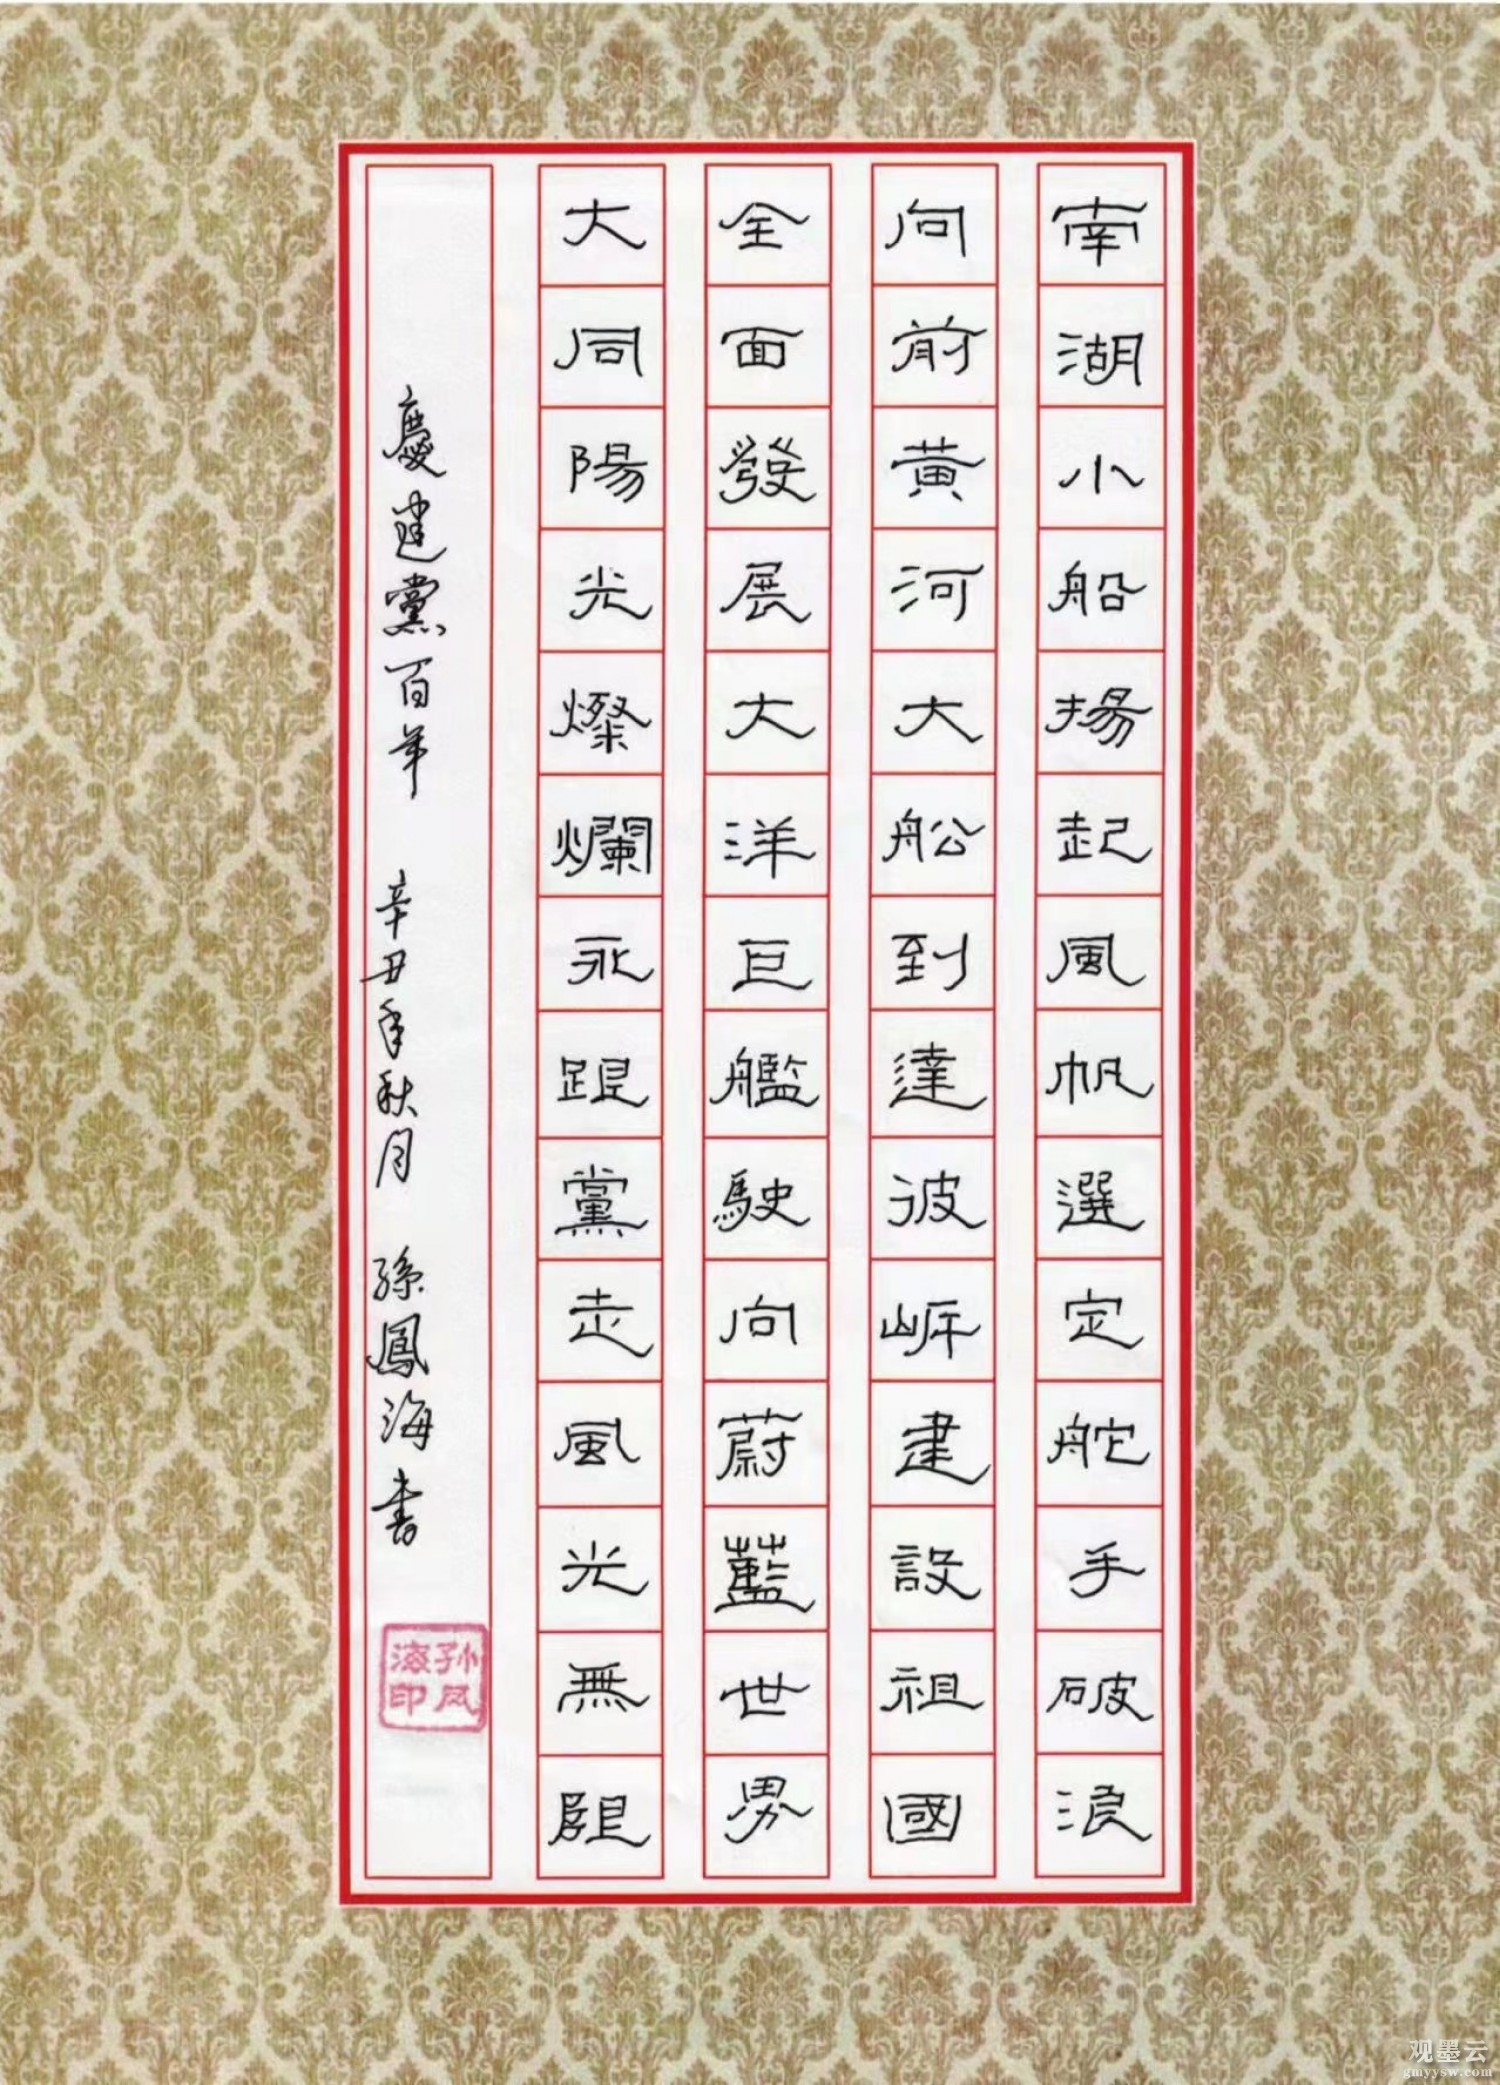 南湖小船揚起風帆選定舵手破浪
向前黃河大船到達彼岸建設祖國
全面發展大洋巨艦駛向蔚藍世界
大同陽光燦爛永跟黨走風光無限
慶建黨百年 辛丑年秋月 孫鳳海書
孙凤海印
观墨云
gmyysw.com